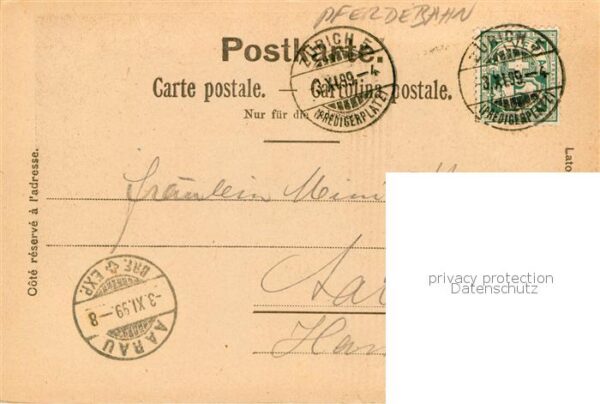 PFERDEBAHN
Postkarte.
Carte postale. — Cartolina postale.
Nur für die
ZÜRICH 5
3.XI.99.–4
(PREDIGERPLATZ)
ZÜRICH 5
3.XI.99.–4
(PREDIGERPLATZ)
Côté réservé à l'adresse.
Lato
Fräulein Mini
Aar
BRF. EXP.
-3.XI.99.–8
AARAU
privacy protection
Datenschutz